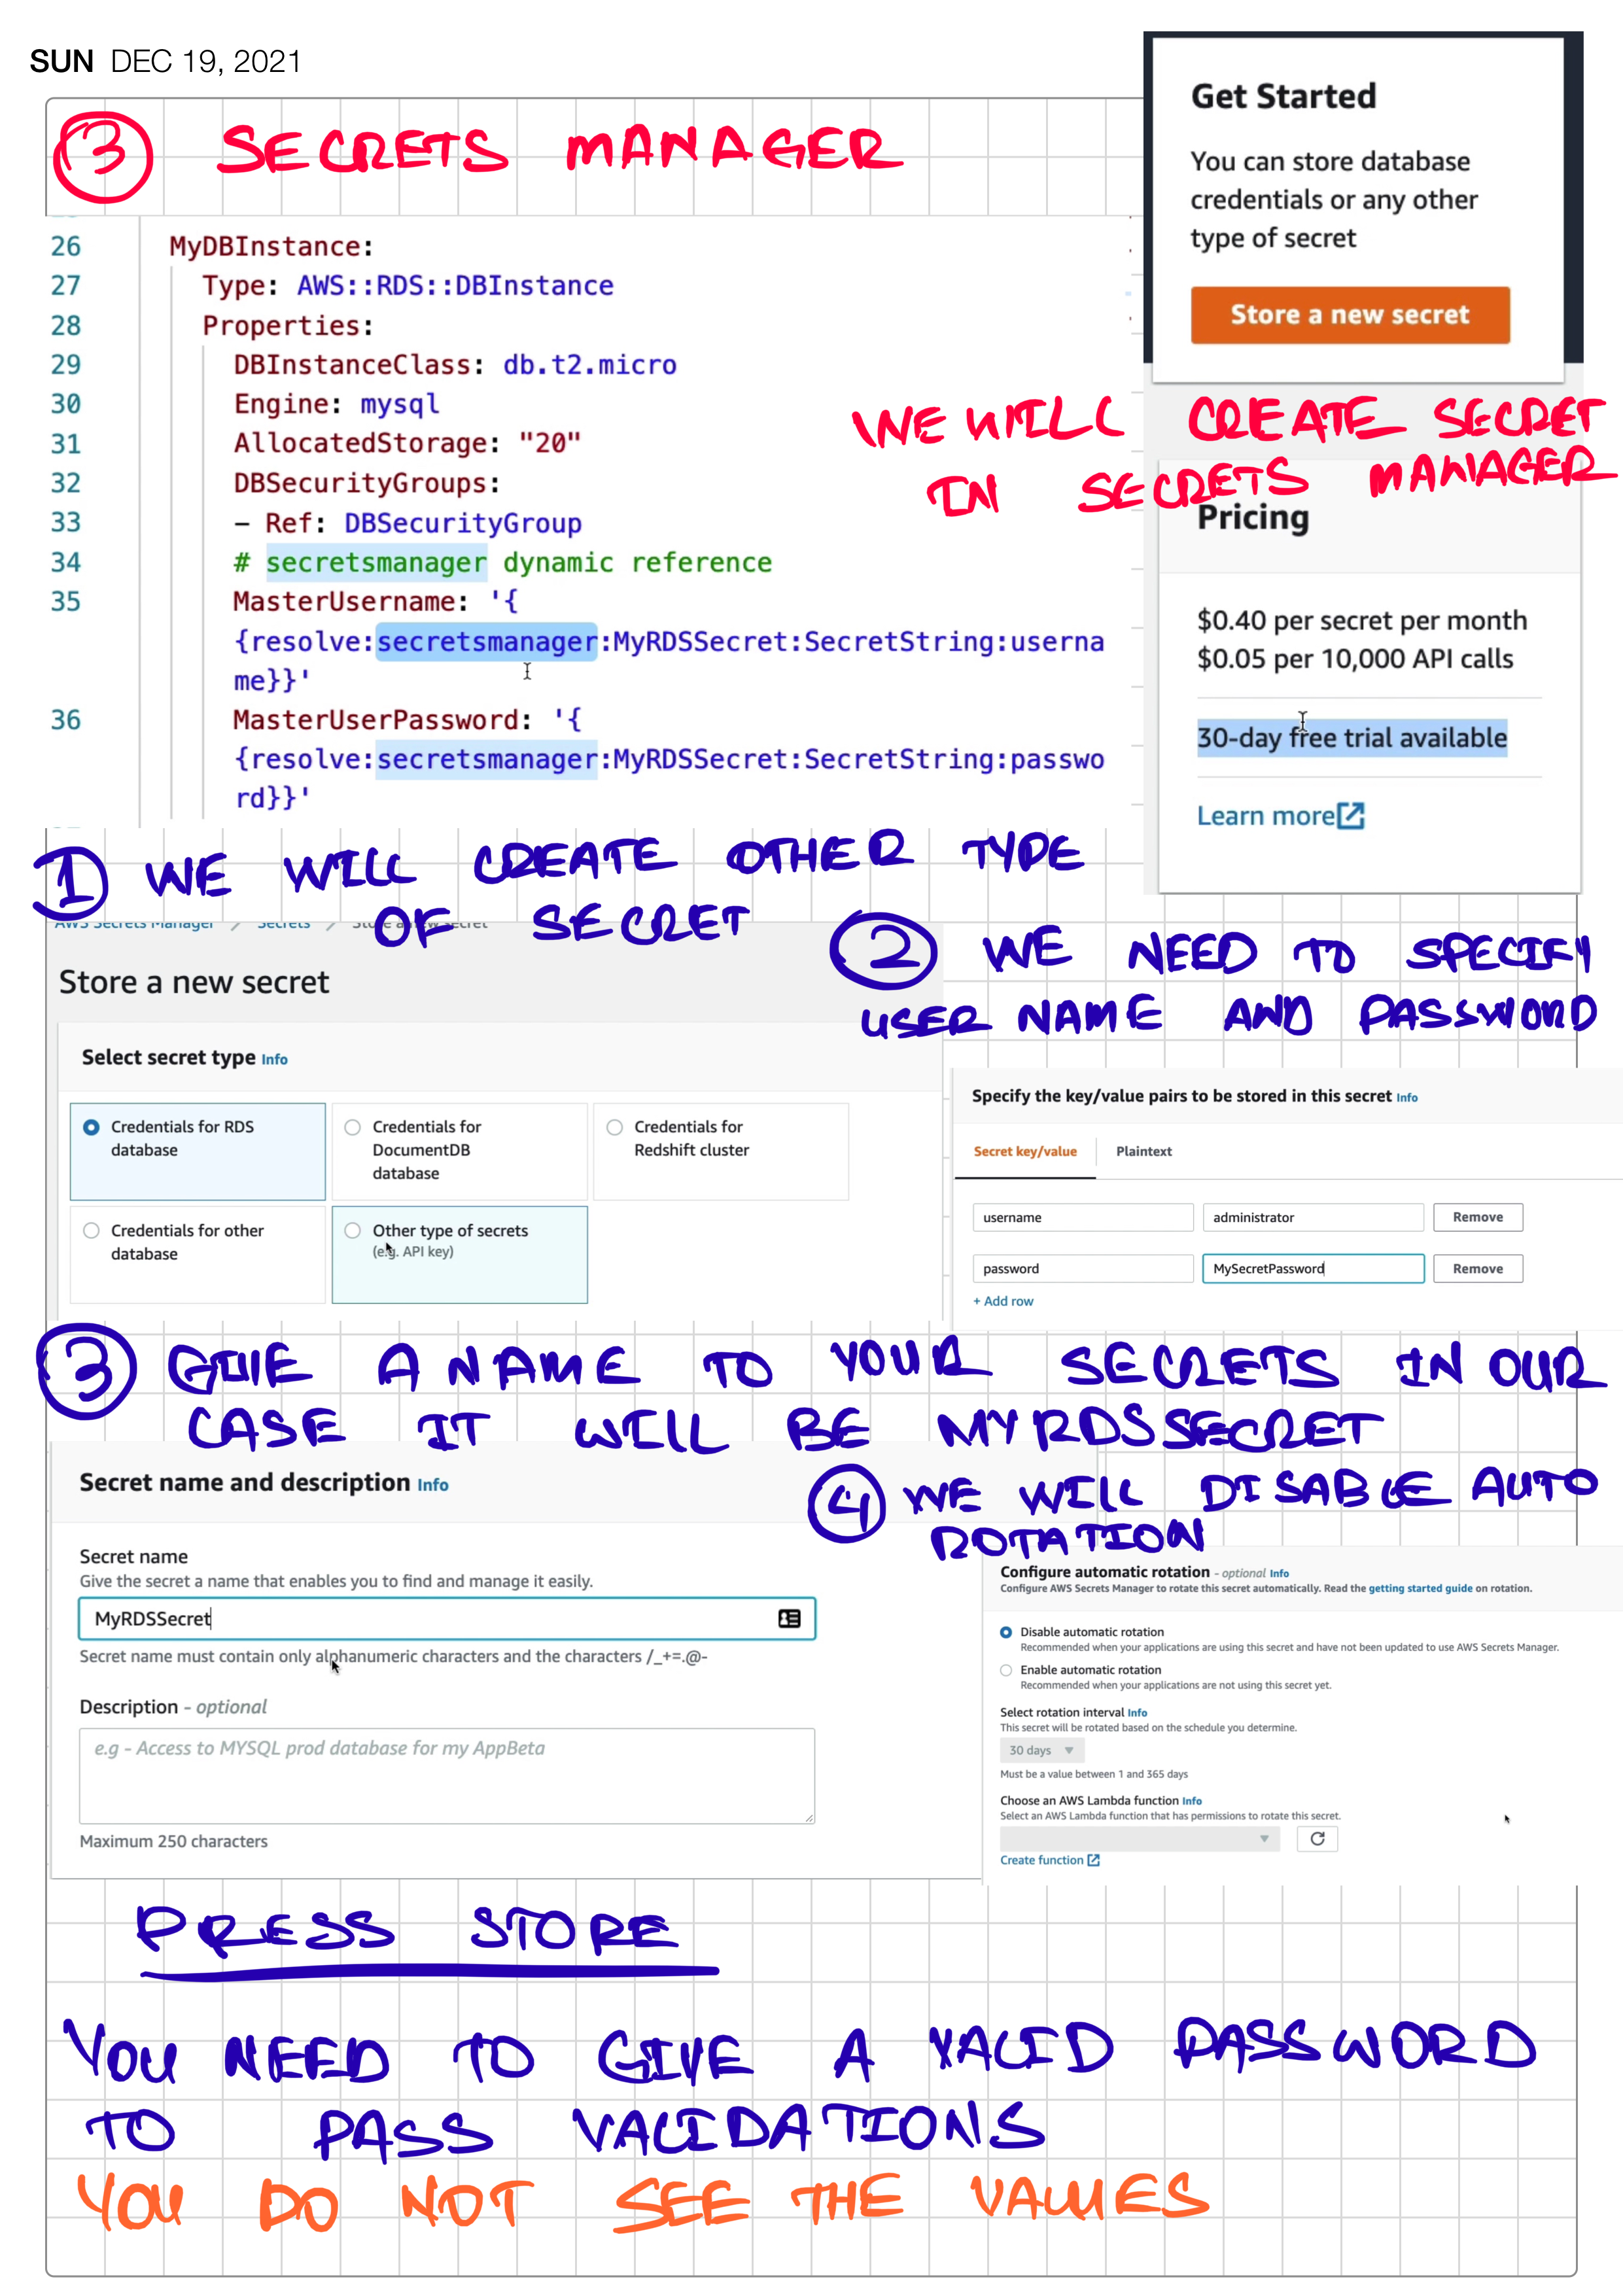 SUN DEC 19, 2021
3 SECRETS MANAGER
26 MyDBInstance:
27 Type: AWS::RDS::DBInstance
28 Properties:
29 DBInstanceClass: db.t2.micro
30 Engine: mysql
31 AllocatedStorage: "20"
32 DBSecurityGroups:
33 – Ref: DBSecurityGroup
34 # secretsmanager dynamic reference
35 MasterUsername: '{
{resolve:secretsmanager:MyRDSSecret:SecretString:userna
me}}'
36 MasterUserPassword: '{
{resolve:secretsmanager:MyRDSSecret:SecretString:passwo
rd}}'
Get Started
You can store database
credentials or any other
type of secret
Store a new secret
WE WILL CREATE SECRET
IN SECRETS MANAGER
Pricing
$0.40 per secret per month
$0.05 per 10,000 API calls
30-day free trial available
Learn more
1) WE WILL CREATE OTHER TYPE
OF SECRET
AWS Secrets Manager / Secrets / Store a new secret
Store a new secret
Select secret type Info
Credentials for RDS
database
Credentials for
DocumentDB
database
Credentials for
Redshift cluster
Credentials for other
database
Other type of secrets
(e.g. API key)
2 WE NEED TO SPECIFY
USER NAME AND PASSWORD
Specify the key/value pairs to be stored in this secret Info
Secret key/value Plaintext
username administrator Remove
password MySecretPassword Remove
+ Add row
3 GIVE A NAME TO YOUR SECRETS IN OUR
CASE IT WILL BE MYRDSSECRET
Secret name and description Info
Secret name
Give the secret a name that enables you to find and manage it easily.
MyRDSSecret
Secret name must contain only alphanumeric characters and the characters /_+=.@-
Description - optional
e.g - Access to MYSQL prod database for my AppBeta
Maximum 250 characters
4 WE WILL DISABLE AUTO
ROTATION
Configure automatic rotation - optional Info
Configure AWS Secrets Manager to rotate this secret automatically. Read the getting started guide on rotation.
Disable automatic rotation
Recommended when your applications are using this secret and have not been updated to use AWS Secrets Manager.
Enable automatic rotation
Recommended when your applications are not using this secret yet.
Select rotation interval Info
This secret will be rotated based on the schedule you determine.
30 days
Must be a value between 1 and 365 days
Choose an AWS Lambda function Info
Select an AWS Lambda function that has permissions to rotate this secret.
Create function
PRESS STORE
YOU NEED TO GIVE A VALID PASSWORD
TO PASS VALIDATIONS
YOU DO NOT SEE THE VALUES